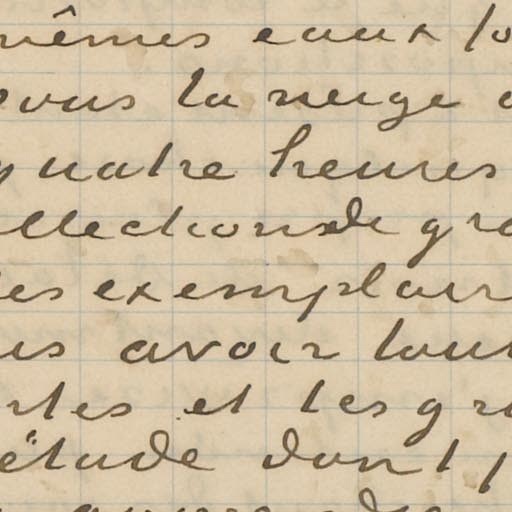 mêmes eaux
vous la neige
quatre heures
llections de gra
les exemplair
us avoir tout
rtes et les gr
étude dont